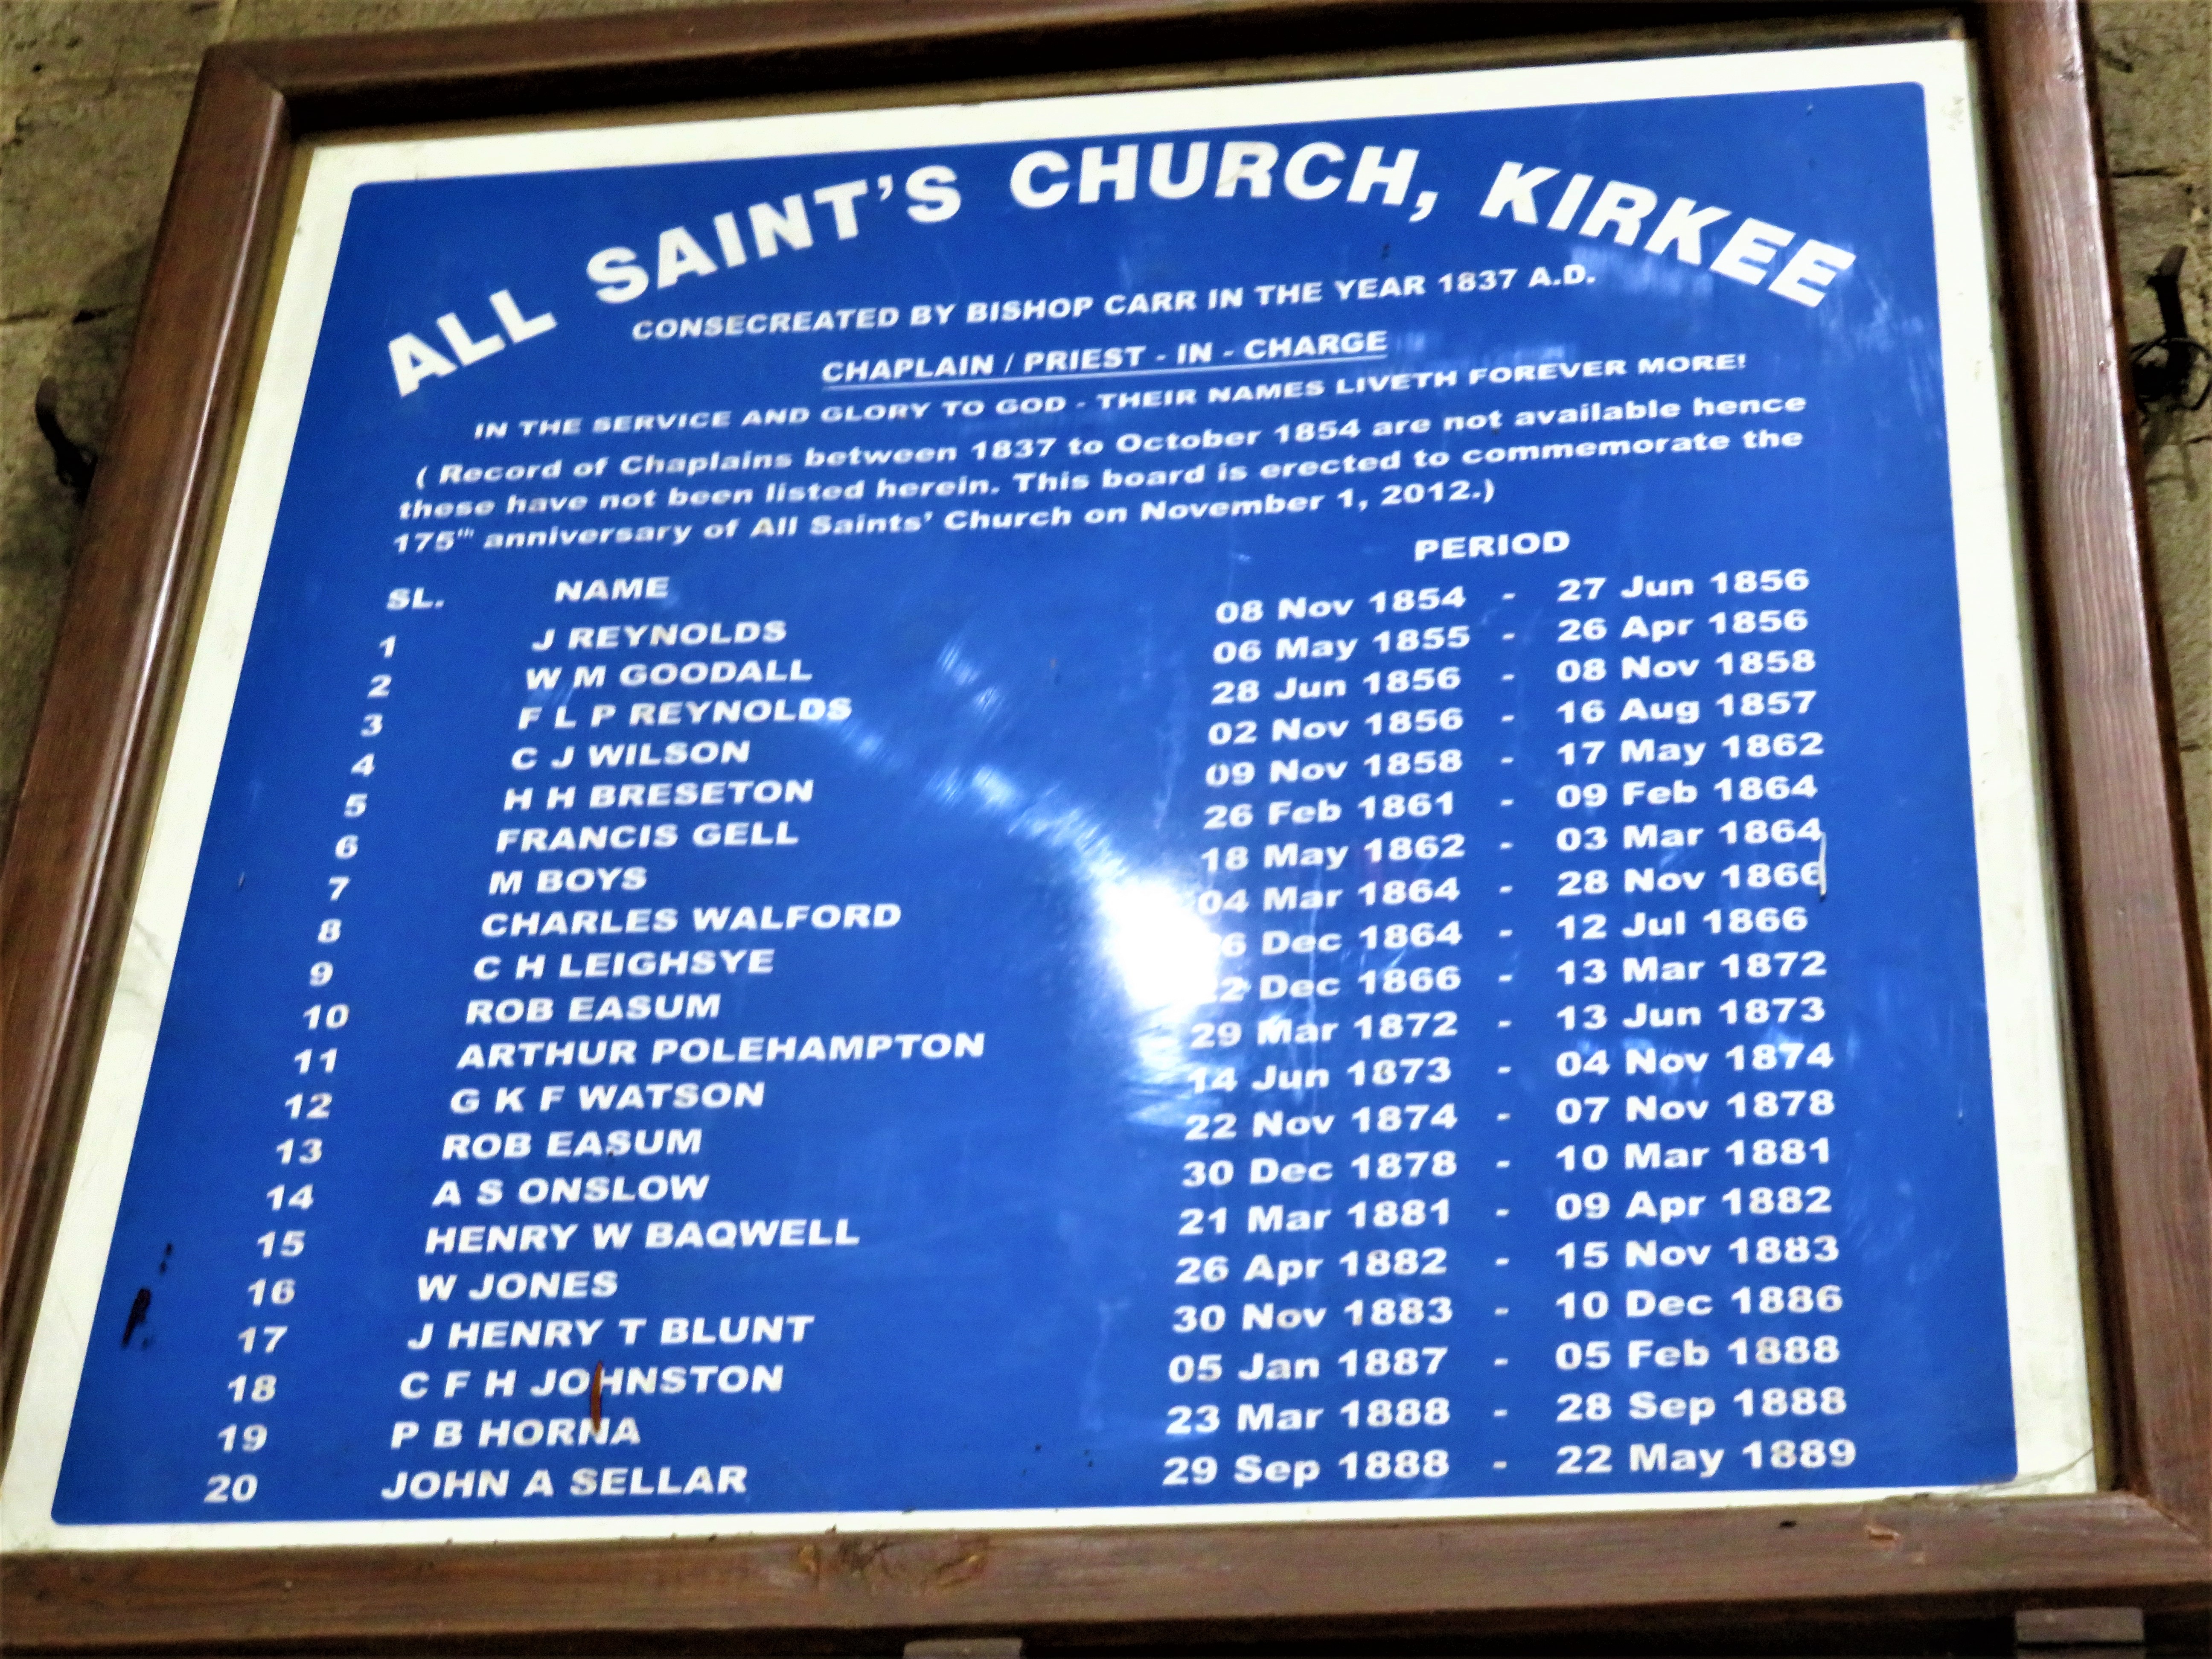 ALL SAINT'S CHURCH, KIRKEE
CONSECREATED BY BISHOP CARR IN THE YEAR 1837 A.D.
CHAPLAIN / PRIEST - IN - CHARGE
IN THE SERVICE AND GLORY TO GOD - THEIR NAMES LIVETH FOREVER MORE!
( Record of Chaplains between 1837 to October 1854 are not available hence
these have not been listed herein. This board is erected to commemorate the
175th anniversary of All Saints' Church on November 1, 2012.)
SL. NAME PERIOD
1 J REYNOLDS 08 Nov 1854 - 27 Jun 1856
2 W M GOODALL 06 May 1855 - 26 Apr 1856
3 F L P REYNOLDS 28 Jun 1856 - 08 Nov 1858
4 C J WILSON 02 Nov 1856 - 16 Aug 1857
5 H H BRESETON 09 Nov 1858 - 17 May 1862
6 FRANCIS GELL 26 Feb 1861 - 09 Feb 1864
7 M BOYS 18 May 1862 - 03 Mar 1864
8 CHARLES WALFORD 04 Mar 1864 - 28 Nov 1866
9 C H LEIGHSYE Dec 1864 - 12 Jul 1866
10 ROB EASUM Dec 1866 - 13 Mar 1872
11 ARTHUR POLEHAMPTON 29 Mar 1872 - 13 Jun 1873
12 G K F WATSON 14 Jun 1873 - 04 Nov 1874
13 ROB EASUM 22 Nov 1874 - 07 Nov 1878
14 A S ONSLOW 30 Dec 1878 - 10 Mar 1881
15 HENRY W BAQWELL 21 Mar 1881 - 09 Apr 1882
16 W JONES 26 Apr 1882 - 15 Nov 1883
17 J HENRY T BLUNT 30 Nov 1883 - 10 Dec 1886
18 C F H JOHNSTON 05 Jan 1887 - 05 Feb 1888
19 P B HORNA 23 Mar 1888 - 28 Sep 1888
20 JOHN A SELLAR 29 Sep 1888 - 22 May 1889